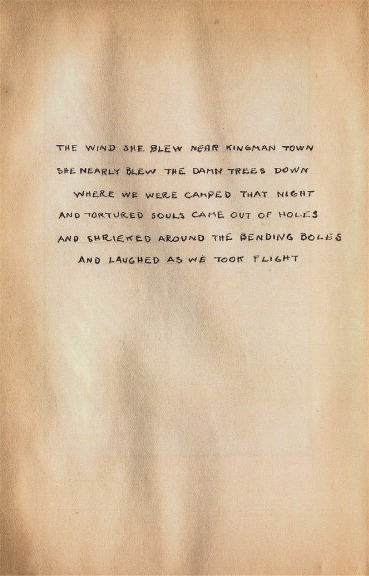 THE WIND SHE BLEW NEAR KINGMAN TOWN
SHE NEARLY BLEW THE DAMN TREES DOWN
WHERE WE WERE CAMPED THAT NIGHT
AND TORTURED SOULS CAME OUT OF HOLES
AND SHRIEKED AROUND THE BENDING BOLES
AND LAUGHED AS WE TOOK FLIGHT